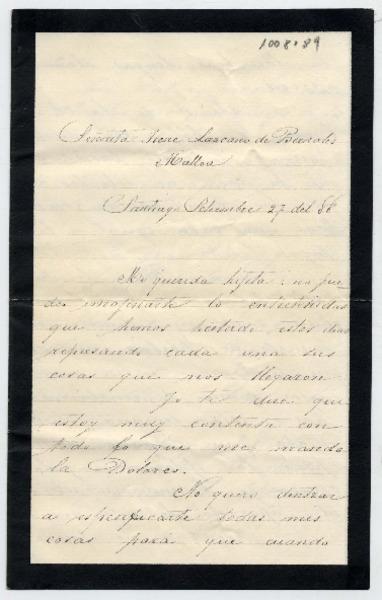 1008.89
Señorita Irene Lazcano de
Malloa
Santiago Setiembre 27 del 86
Mi querida hijita: no pue-
des imajinarte lo entretenidas
que hemos estado estos dias
repasando cada una sus
cosas que nos llegaron
Yo te diré que
estoy muy contenta con
todo lo que me mandó
la Dolores.
No quiero
a todas mis
cosas para que cuando